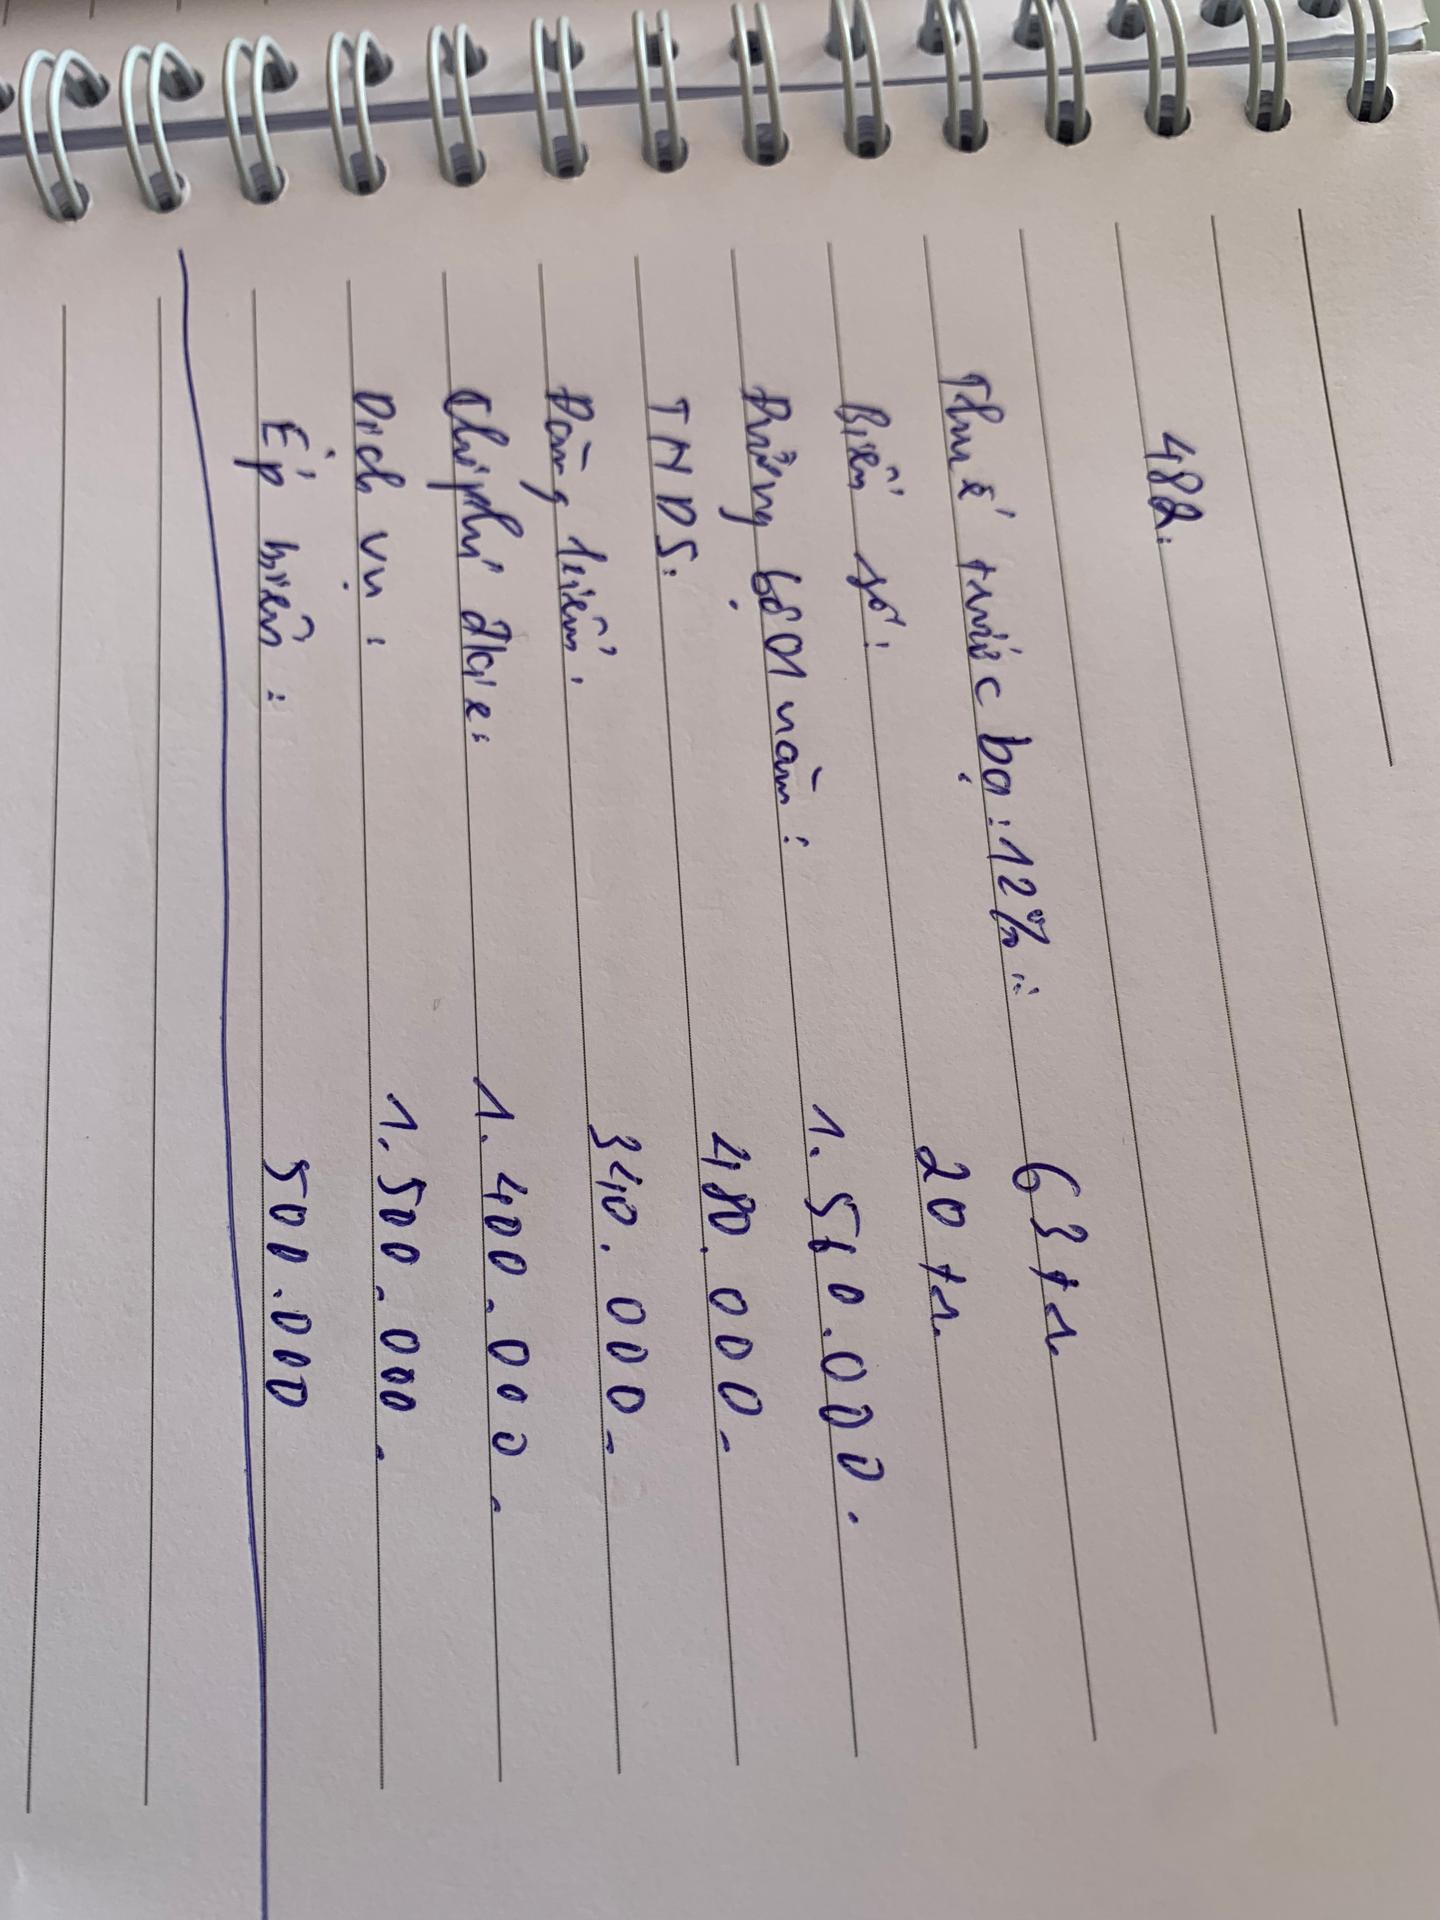 482:
Thuế trước bạ: 12%: 63 tr
Biển số: 20 tr.
Đường bộ 01 năm: 1.560.000.
TNDS: 480.000.
Đăng kiểm: 340.000.
Chi phí đk xe: 1.400.000.
Dịch vụ: 1.500.000.
Ép biển: 500.000